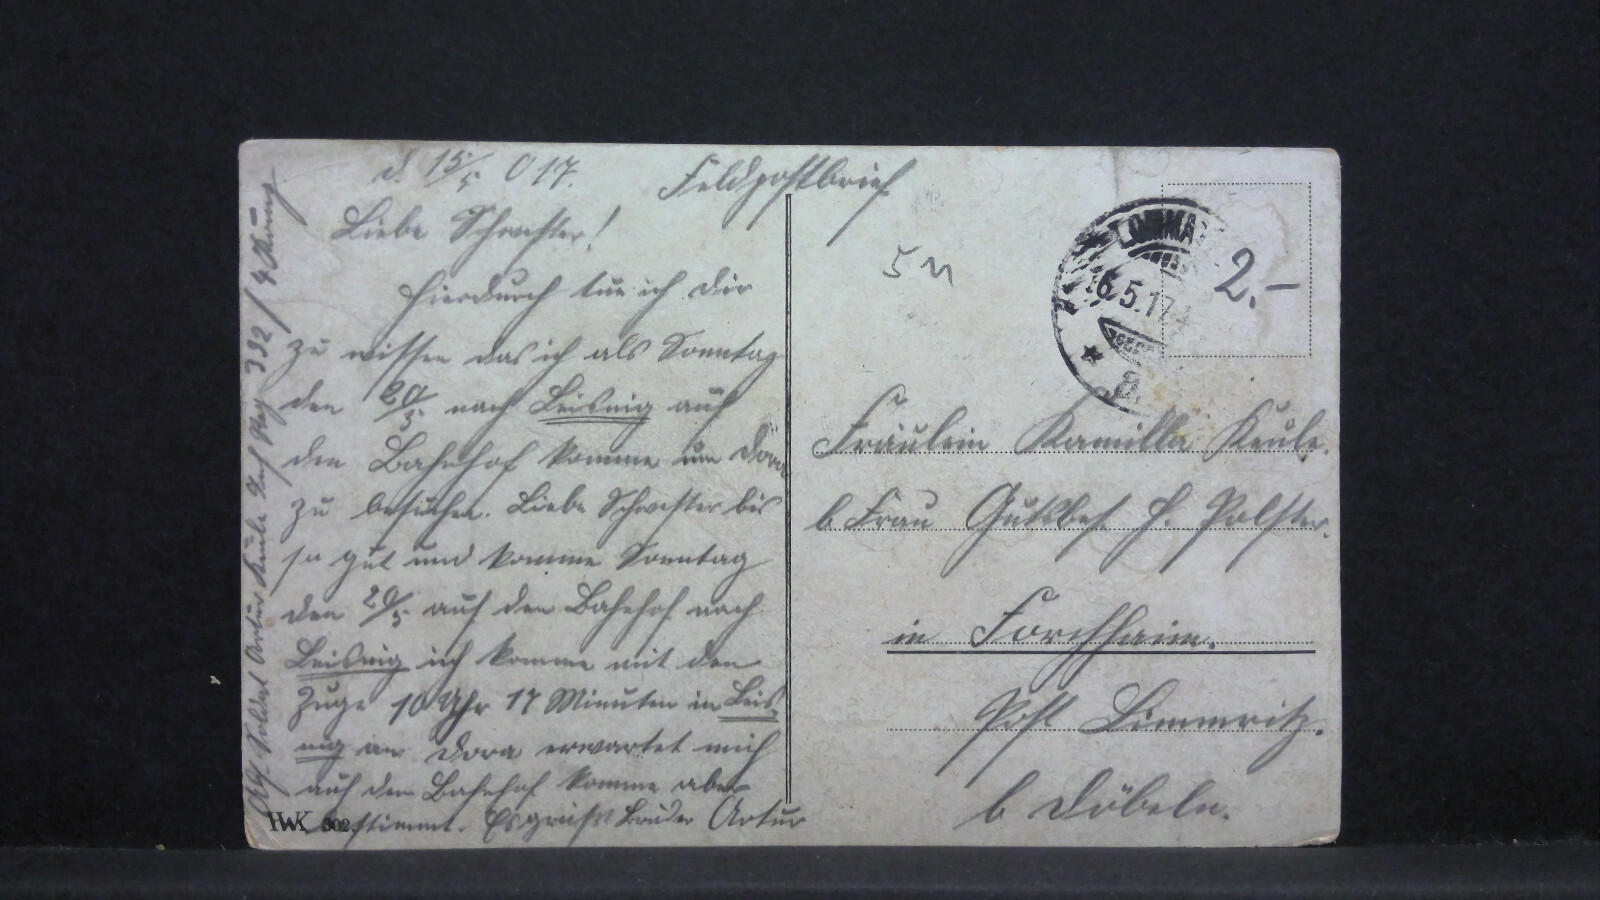 d. 15/5 017.
Feldpostbrief
Liebe Schwester!
Hierdurch tue ich Dir
zu wissen das ich als Sonntag
den 20/5 nach Leisnig auf
den Bahnhof komme um Dora
zu besuchen. Liebe Schwester bis
so gut und komme Sonntag
den 20/5 auf den Bahnhof nach
Leisnig ich komme mit den
Zuge 10 Uhr 17 Minuten in Leis
nig an Dora erwartet mich
auf den Bahnhof komme aber
bestimmt. Es grüßt Bruder Artur
Abs. Soldat Artur Keule Inf Reg 332 / 4 Komp
HWK 302.
5 M
LOMMA
16.5.17
2.-
Fräulein Kamilla Keule.
b Frau Gutsbes H. Polster.
in Forchheim.
Post Limmritz.
b Döbeln.